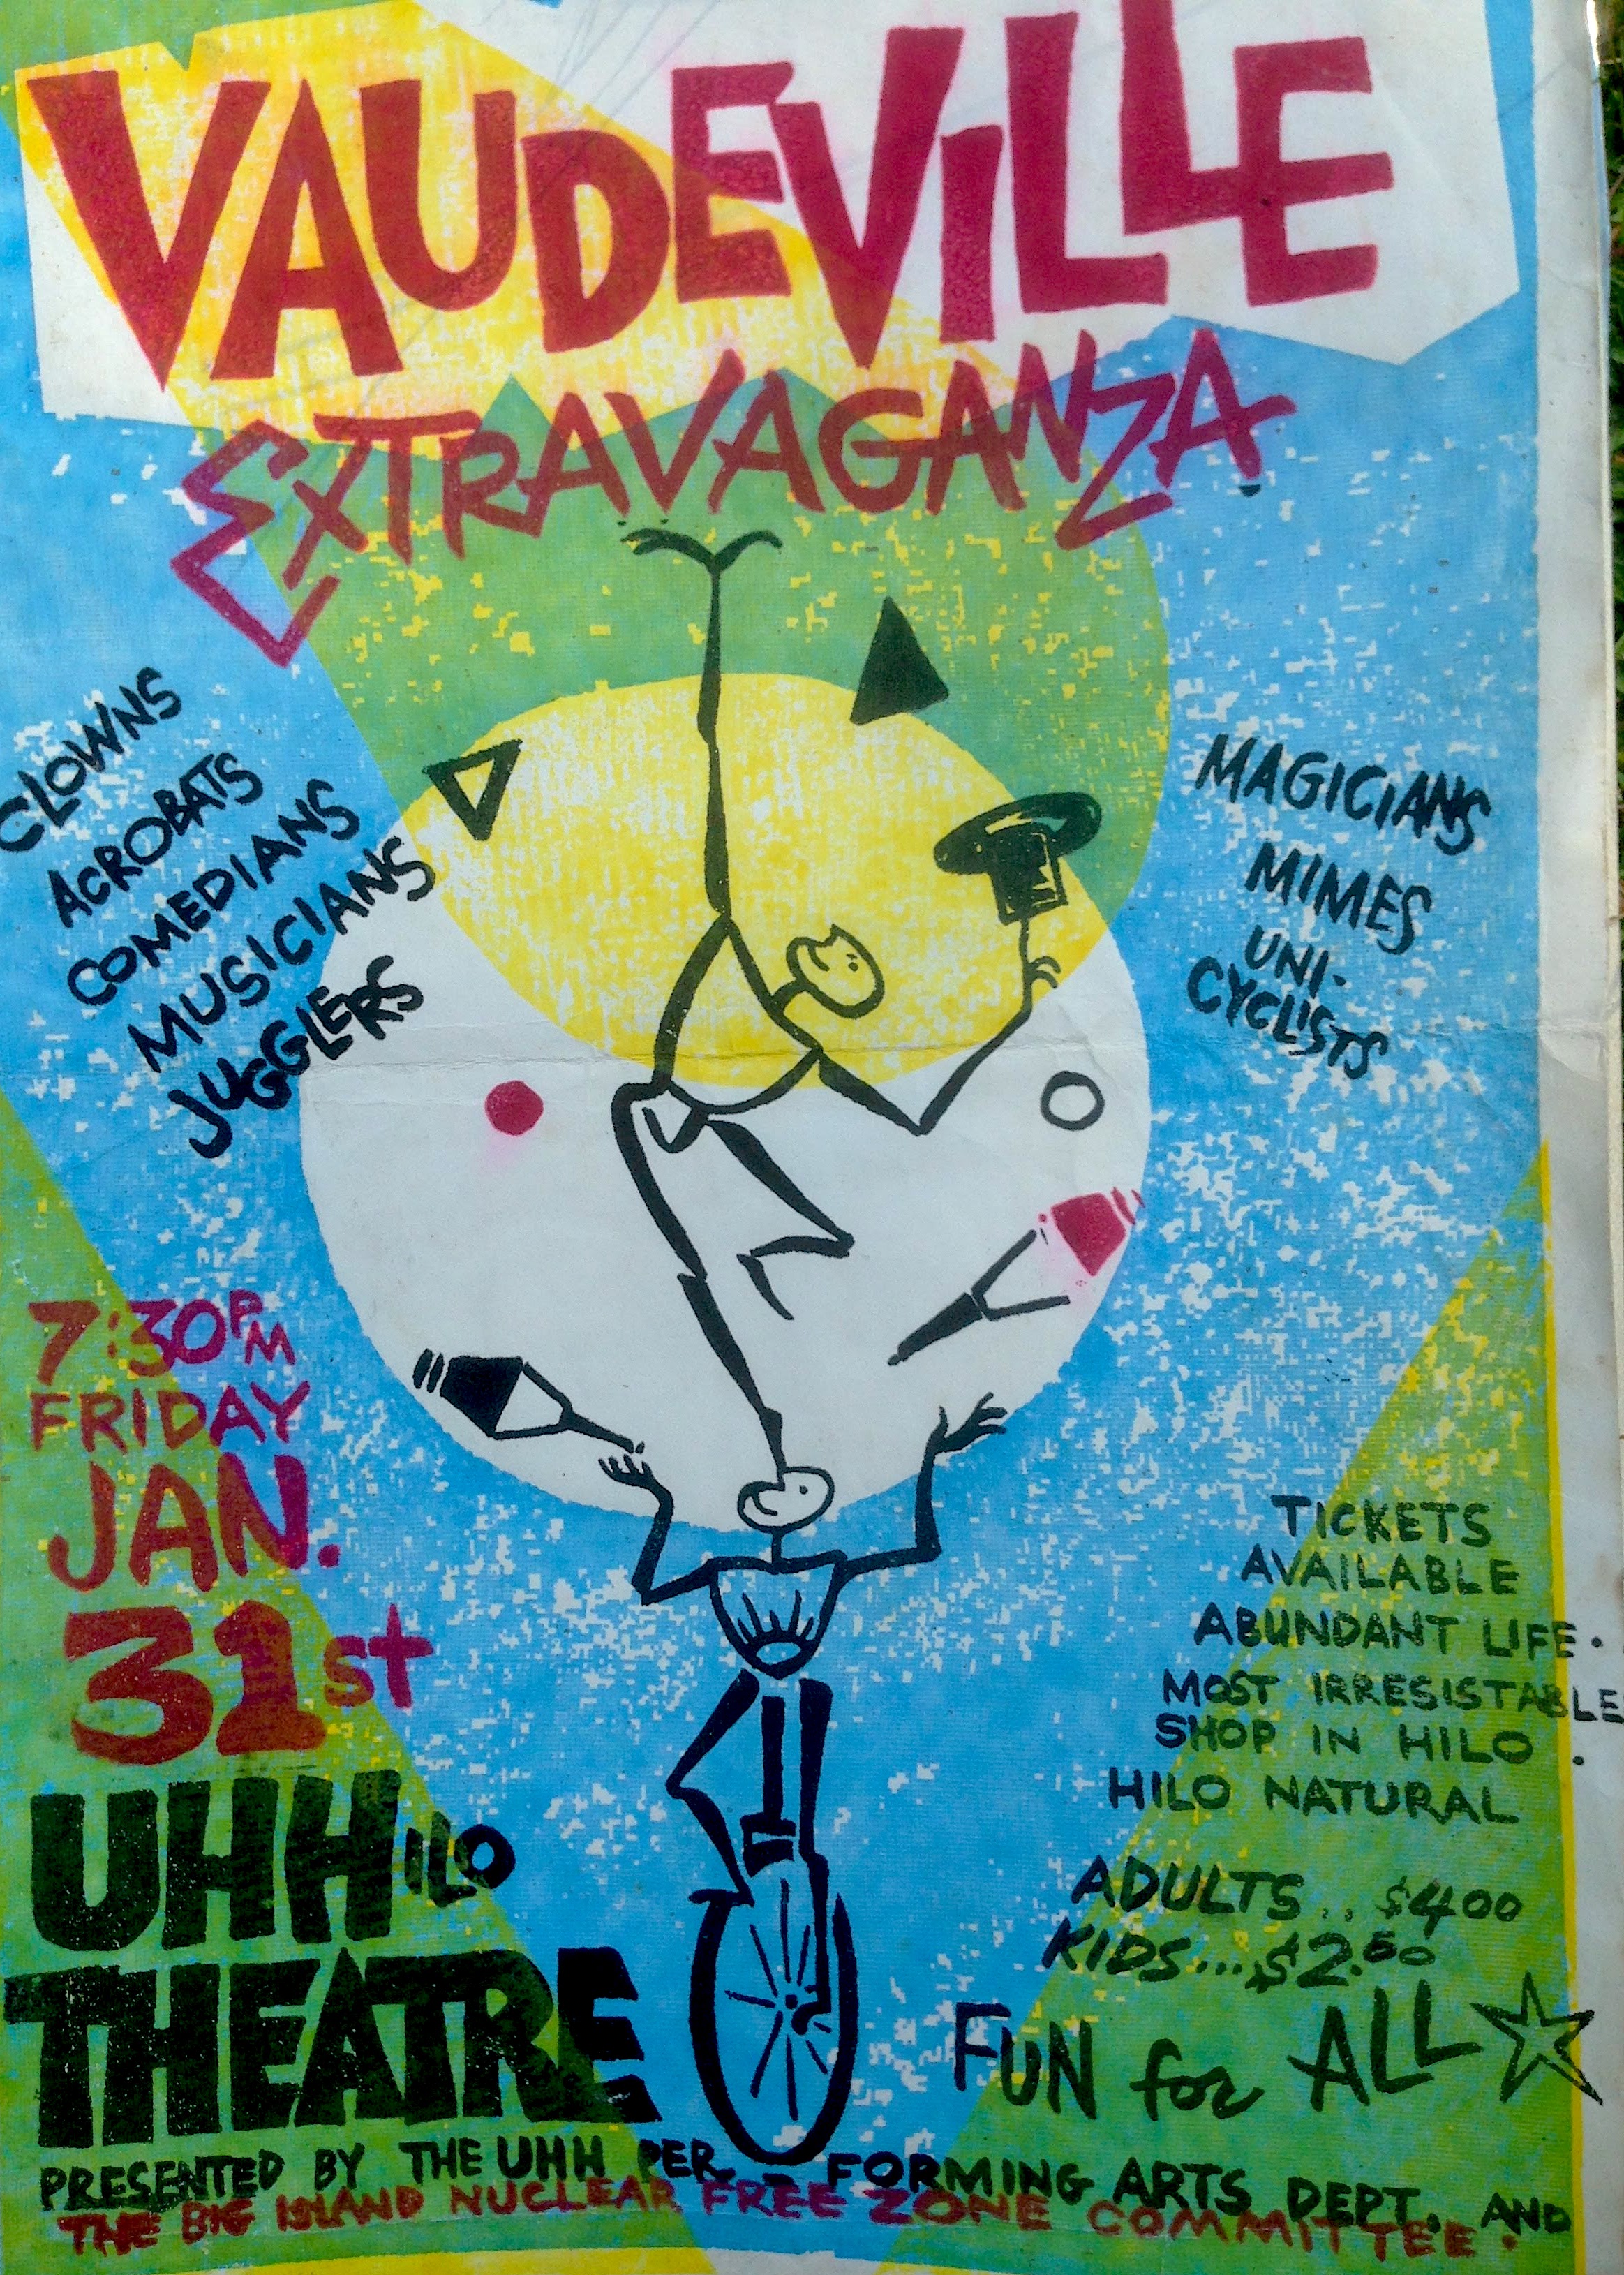 VAUDEVILLE
EXTRAVAGANZA
CLOWNS
ACROBATS
COMEDIANS
MUSICIANS
JUGGLERS
MAGICIANS
MIMES
UNI-
CYCLISTS
7:30PM
FRIDAY
JAN.
31st
UHHILO
THEATRE
TICKETS
AVAILABLE
ABUNDANT LIFE.
MOST IRRESISTABLE
SHOP IN HILO .
HILO NATURAL
ADULTS.. $400
KIDS...$2.50
FUN for ALL
PRESENTED BY THE UHH PER - FORMING ARTS DEPT. AND
THE BIG ISLAND NUCLEAR FREE ZONE COMMITTEE.